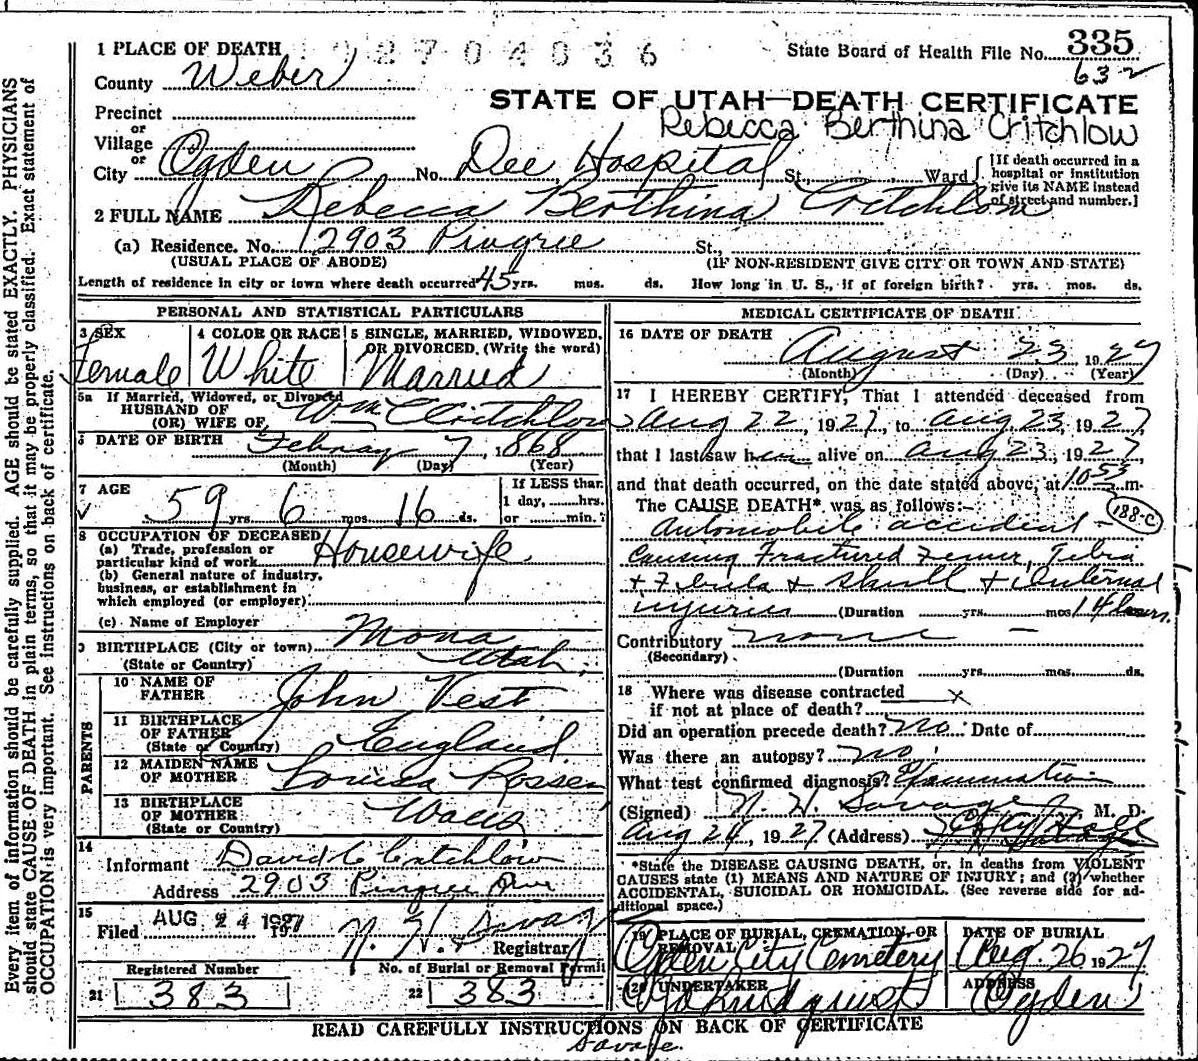 Every item of information should be carefully supplied. AGE should be stated EXACTLY. PHYSICIANS
should state CAUSE OF DEATH in plain terms, so that it may be properly classified. Exact statement of
OCCUPATION is very important. See instructions on back of certificate.
2704036
State Board of Health File No. 335
632
1 PLACE OF DEATH
County Weber
STATE OF UTAH—DEATH CERTIFICATE
Rebecca Berthina Critchlow
Precinct
or
Village
or
City Ogden No. Dee Hospital St., Ward
[If death occurred in a
hospital or institution
give its NAME instead
of street and number.]
2 FULL NAME Rebecca Berthina Critchlow
(a) Residence. No. 2903 Pingree St.,
(USUAL PLACE OF ABODE) (IF NON-RESIDENT GIVE CITY OR TOWN AND STATE)
Length of residence in city or town where death occurred 45 yrs. mos. ds. How long in U. S., if of foreign birth? yrs. mos. ds.
PERSONAL AND STATISTICAL PARTICULARS
3 SEX
Female
4 COLOR OR RACE
White
5 SINGLE, MARRIED, WIDOWED,
OR DIVORCED. (Write the word)
Married
5a If Married, Widowed, or Divorced
HUSBAND OF
(OR) WIFE OF Wm Critchlow
6 DATE OF BIRTH Febuary 7, 1868
(Month) (Day) (Year)
7 AGE
59 yrs. 6 mos. 16 ds.
If LESS than
1 day, hrs.
or min.
8 OCCUPATION OF DECEASED
(a) Trade, profession or
particular kind of work Housewife
(b) General nature of industry,
business, or establishment in
which employed (or employer)
(c) Name of Employer
9 BIRTHPLACE (City or town) Mona
(State or Country) Utah
PARENTS
10 NAME OF
FATHER John Vest
11 BIRTHPLACE
OF FATHER
(State or Country) England
12 MAIDEN NAME
OF MOTHER Louisa Rosser
13 BIRTHPLACE
OF MOTHER
(State or Country) Wales
14
Informant David C Critchlow
Address 2903 Pingree Ave
15
Filed AUG 24 1927 N. H. Savage
Registrar
Registered Number
21 383
No. of Burial or Removal Permit
22 383
MEDICAL CERTIFICATE OF DEATH
16 DATE OF DEATH
August 23 1927
(Month) (Day) (Year)
17 I HEREBY CERTIFY, That I attended deceased from
Aug 22, 1927, to Aug 23, 1927
that I last saw her alive on Aug 23, 1927
and that death occurred, on the date stated above, at 10 55 m.
The CAUSE DEATH* was as follows:
188-c
Automobile accident -
Causing Fractured Femur, Tibia
+ Fibula + Skull + Internal
injuries (Duration yrs. mos. 14 hours.
Contributory none
(Secondary)
(Duration yrs. mos. ds.
18 Where was disease contracted
if not at place of death? x
Did an operation precede death? no Date of
Was there an autopsy? no
What test confirmed diagnosis? Examination
(Signed) N. H. Savage M. D.
Aug 24, 1927 (Address)
*State the DISEASE CAUSING DEATH, or, in deaths from VIOLENT
CAUSES state (1) MEANS AND NATURE OF INJURY; and (2) whether
ACCIDENTAL, SUICIDAL OR HOMICIDAL. (See reverse side for ad-
ditional space.)
19 PLACE OF BURIAL, CREMATION, OR
REMOVAL
Ogden City Cemetery
DATE OF BURIAL
Aug. 26 1927
20 UNDERTAKER
ADDRESS
Ogden
READ CAREFULLY INSTRUCTIONS ON BACK OF CERTIFICATE
Savage.